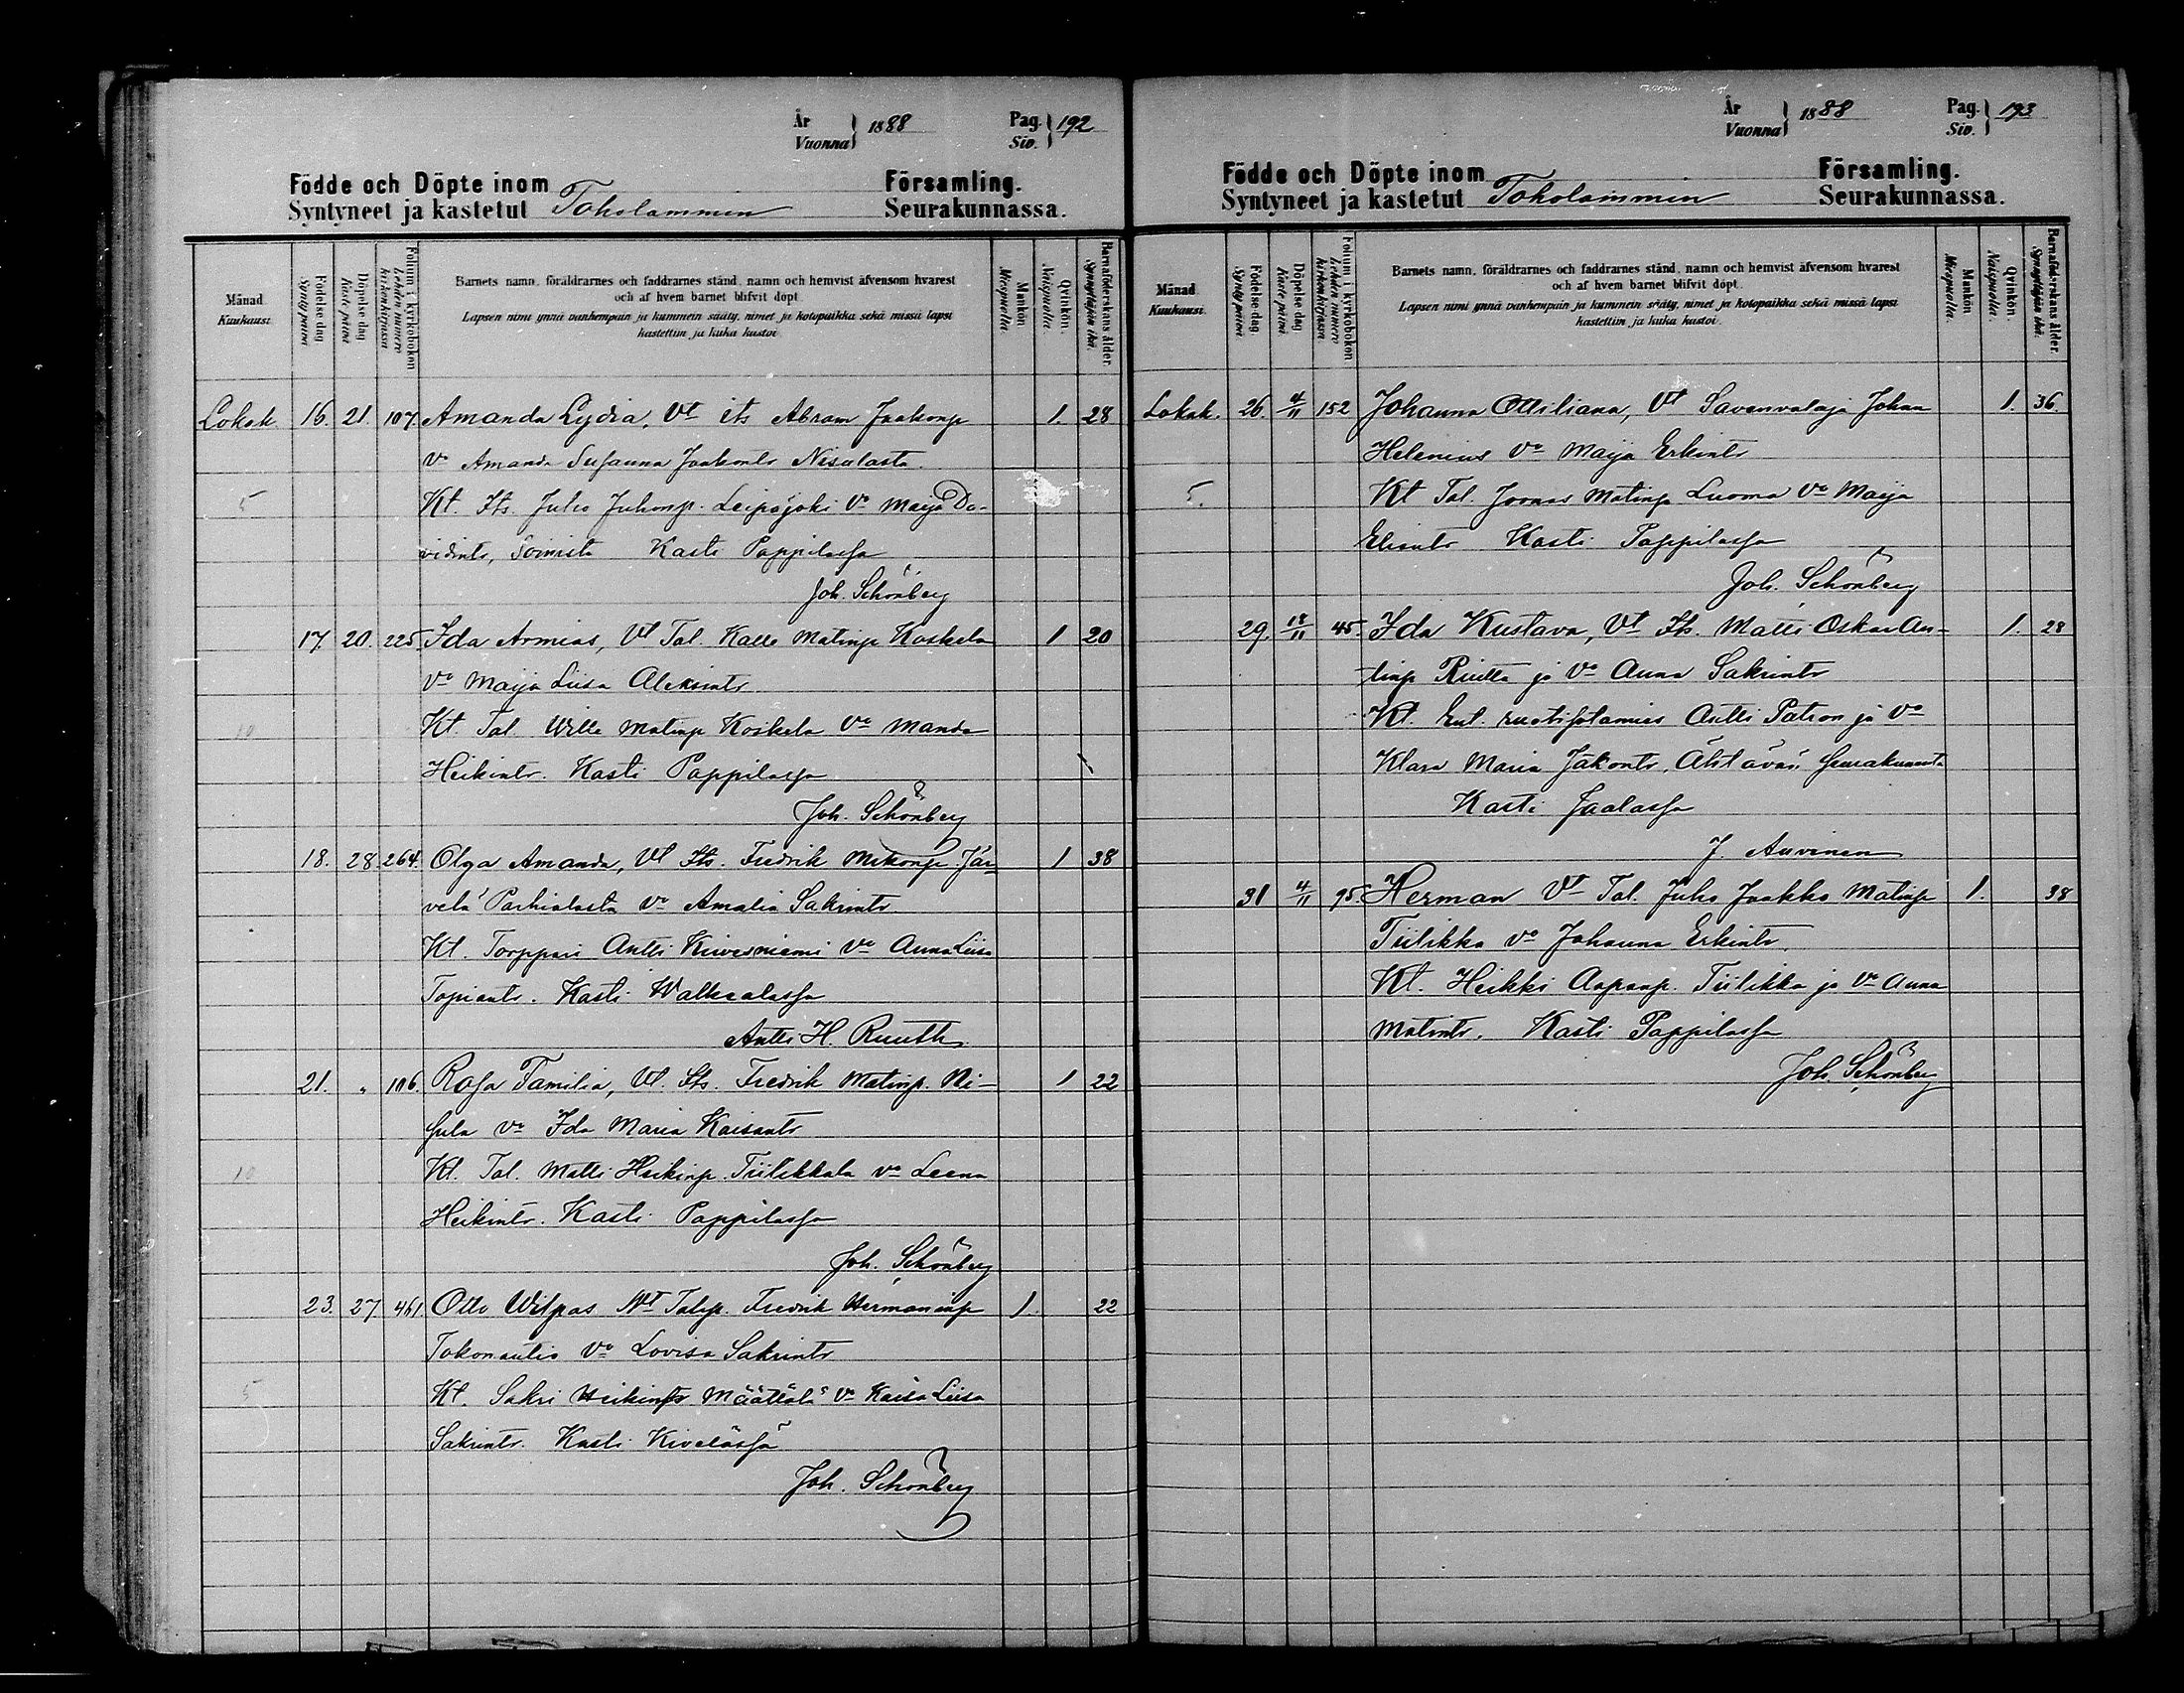 År
Vuonna } 1888
Pag.
Siv. } 192
Födde och Döpte inom Församling.
Syntyneet ja kastetut Toholammin Seurakunnassa.
Månad
Kuukausi.
Födelse dag
Synty päivä
Döpelse dag
Kaste päivä
Folium i kyrkobokon
Lehden numero
kirkonkirjassa
Barnets namn, föräldrarnes och faddrarnes stånd, namn och hemvist äfvensom hvarest
och af hvem barnet blifvit döpt.
Lapsen nimi ynnä vanhempain ja kummein sääty, nimet ja kotopaikka sekä missä lapsi
kastettiin ja kuka kastoi.
Mankön
Miespuolia.
Qvinkön.
Naispuolia.
Barnaföderskans ålder.
Synnyttäjän ikä.
Lokak. 16. 21. 107. Amanda Lydia, Vt its Abram Jaakonp 1. 28
Vo Amanda Susanna Jaakontr Nisulasta.
5 Kt. Its. Juho Juhonp. Leipäjoki Vo Maija Da-
vidintr, Soinista Kasti Pappilassa
Joh. Schönberg
17. 20. 225. Ida Armias, Vt Tal. Kalle Matinp Koskela 1 20
Vo Maija Liisa Aleksintr
10 Kt. Tal Wille Matinp Koskela Vo Manda
Heikintr. Kasti Pappilassa
Joh. Schönberg
18. 28. 264. Olga Amanda, Vt Its. Fredrik Mikonp. Jär- 1 38
velä Parhialasta Vo Amalia Sakrintr.
Kt. Torppari Antti Kiivesniemi Vo Anna Liisa
Topiantr. Kasti Walkealassa
Antti H. Ruuth.
21. " 106. Rosa Familia, Vt. Its. Fredrik Matinp. Ni- 1 22
sula Vo Ida Maria Kaisantr
10 Kt. Tal. Matti Heikinp. Tiilikkala Vo Leena
Heikintr. Kasti Pappilassa
Joh. Schönberg
23. 27. 461. Otto Wilpas Vt Talp. Fredrik Hermaninp 1. 22
Tokonautio Vo Lovisa Sakrintr
5 Kt. Sakri Heikinp Määttälä Vo Kaisa Liisa
Sakrintr. Kasti Kivelässä
Joh. Schönberg
År
Vuonna } 1888
Pag.
Siv. } 193
Födde och Döpte inom Församling.
Syntyneet ja kastetut Toholammin Seurakunnassa.
Månad
Kuukausi.
Födelse-dag
Synty päivä
Döpelse dag
Kaste päivä.
Folium i kyrkobokon.
Lehden numero
kirkonkirjassa.
Barnets namn, föräldrarnes och faddrarnes stånd, namn och hemvist äfvensom hvarest
och af hvem barnet blifvit döpt.
Lapsen nimi ynnä vanhempain ja kummein sääty, nimet ja kotopaikka sekä missä lapsi
kastettiin ja kuka kastoi.
Mankön
Miespuolia.
Qvinkön.
Naispuolia.
Barnaföderskans ålder.
Synnyttäjän ikä.
Lokak. 26. 4/11 152 Johanna Ottiliana, Vt Savenvalaja Johan 1. 36.
Helenius Vo Maija Erkintr
5. Kt Tal. Joonas Matinp Luoma Vo Maija
Eliantr Kasti Pappilassa
Joh. Schönberg
29. 18/11 45 Ida Kustava, Vt Its. Matti Oskar An- 1. 28
tinp Riutta ja Vo Anna Sakrintr
Kt. Ent. ruotisotamies Antti Patron ja Vo
Klara Maria Jakontr. Ähtävän Seurakunnasta
Kasti Jaalassa
J. Auvinen
31 4/11 95. Herman Vt Tal. Juho Jaakko Matinp 1. 38
Tiilikka Vo Johanna Erkintr.
Kt. Heikki Aapanp. Tiilikka ja Vo Anna
Matintr. Kasti Pappilassa
Joh. Schönberg